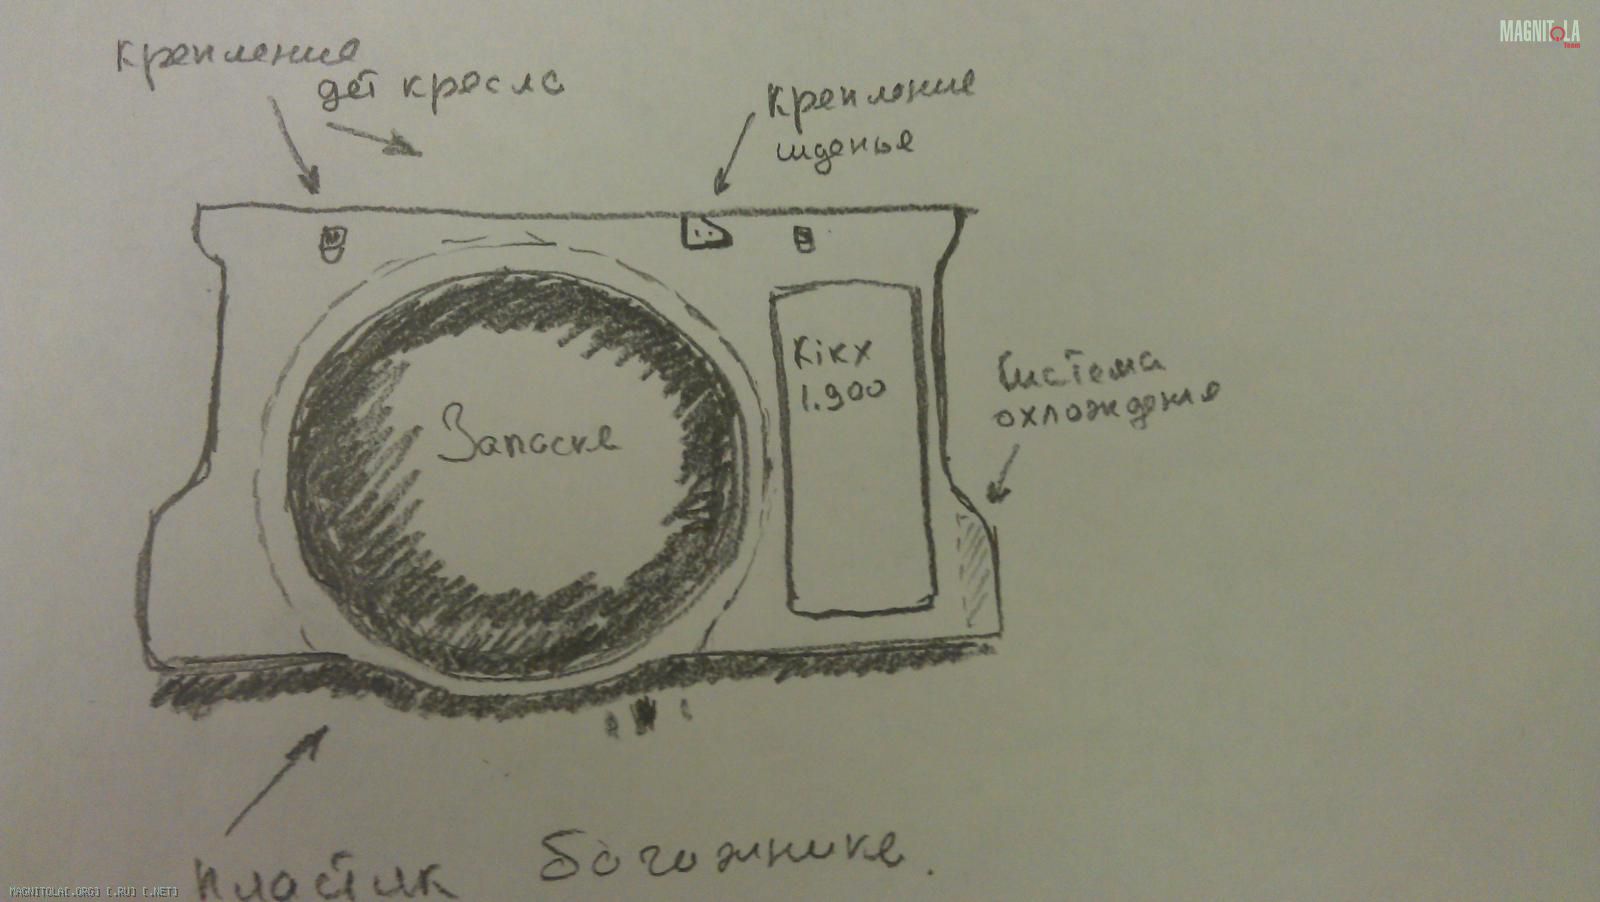 MAGNITOLA
Team
крепление
дет кресла
крепление
шденье
Kikx
1.900
Запаска
Система
охлаждения
пластик багожника.
MAGNITOLA[.ORG] [.RU] [.NET]